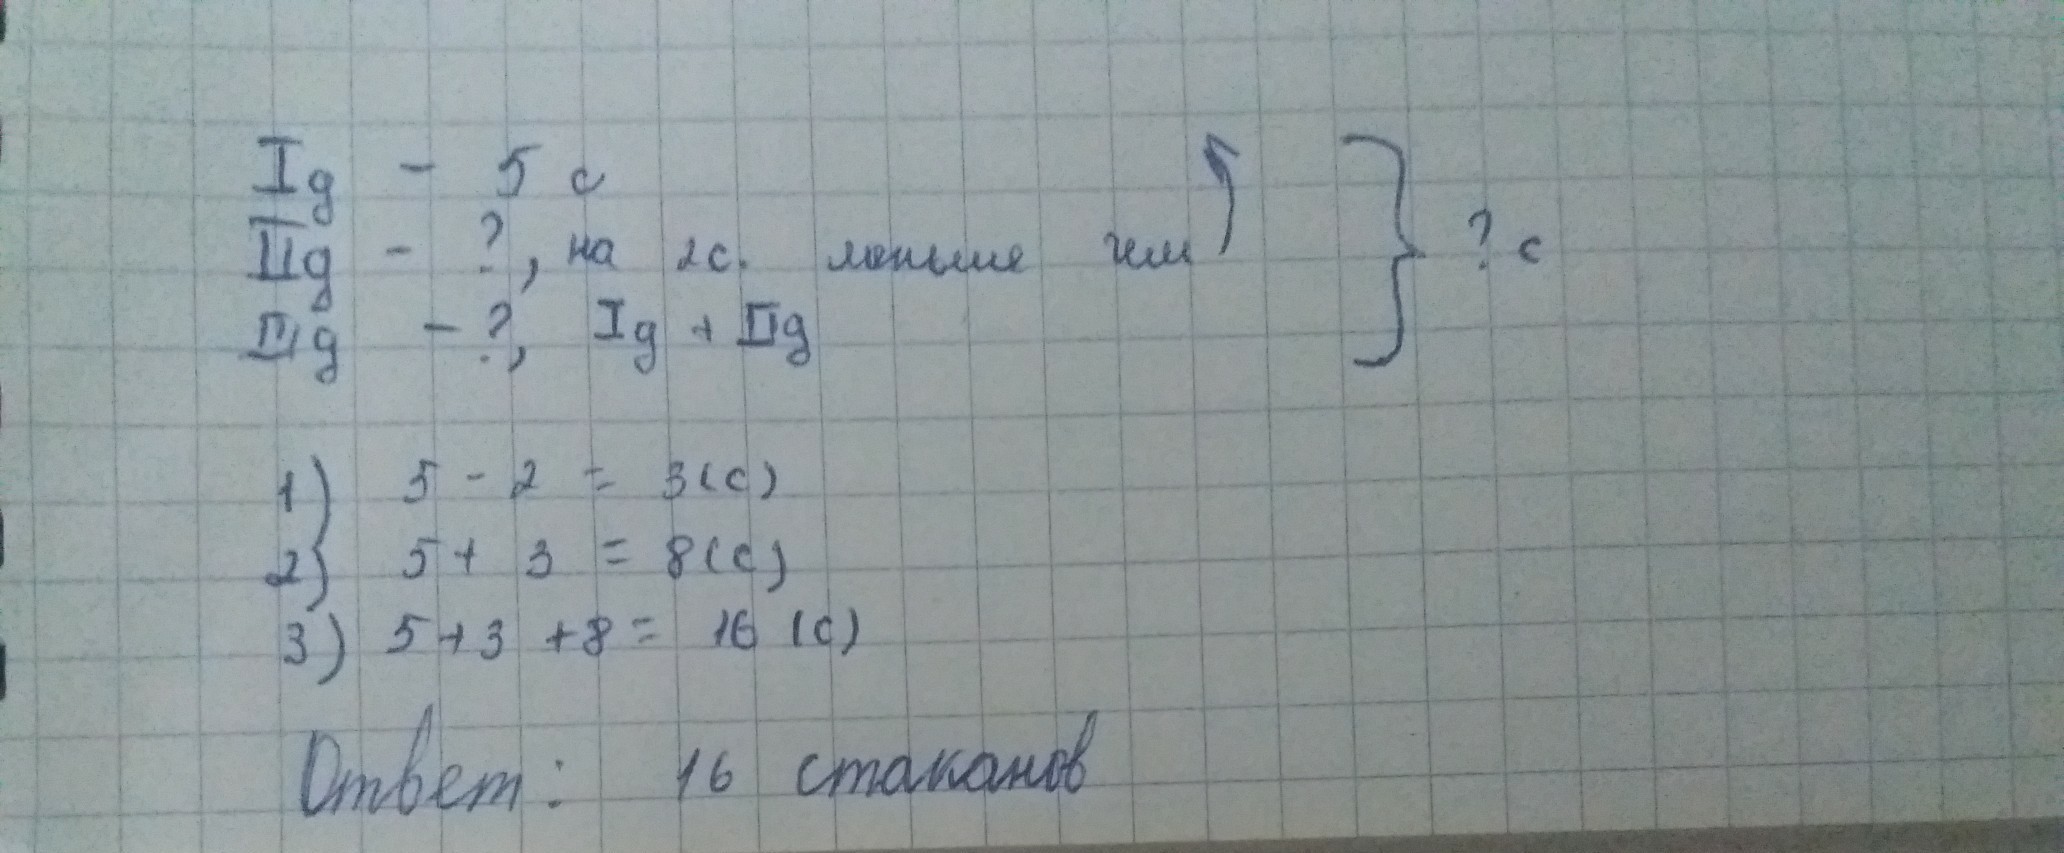 Iд - 5 с
IIд - ?, на 2с. меньше чем
? с
IIIд - ?, Iд + IIд
1) 5 - 2 = 3(с)
2) 5 + 3 = 8(с)
3) 5+3 +8 = 16 (с)
Ответ: 16 стаканов